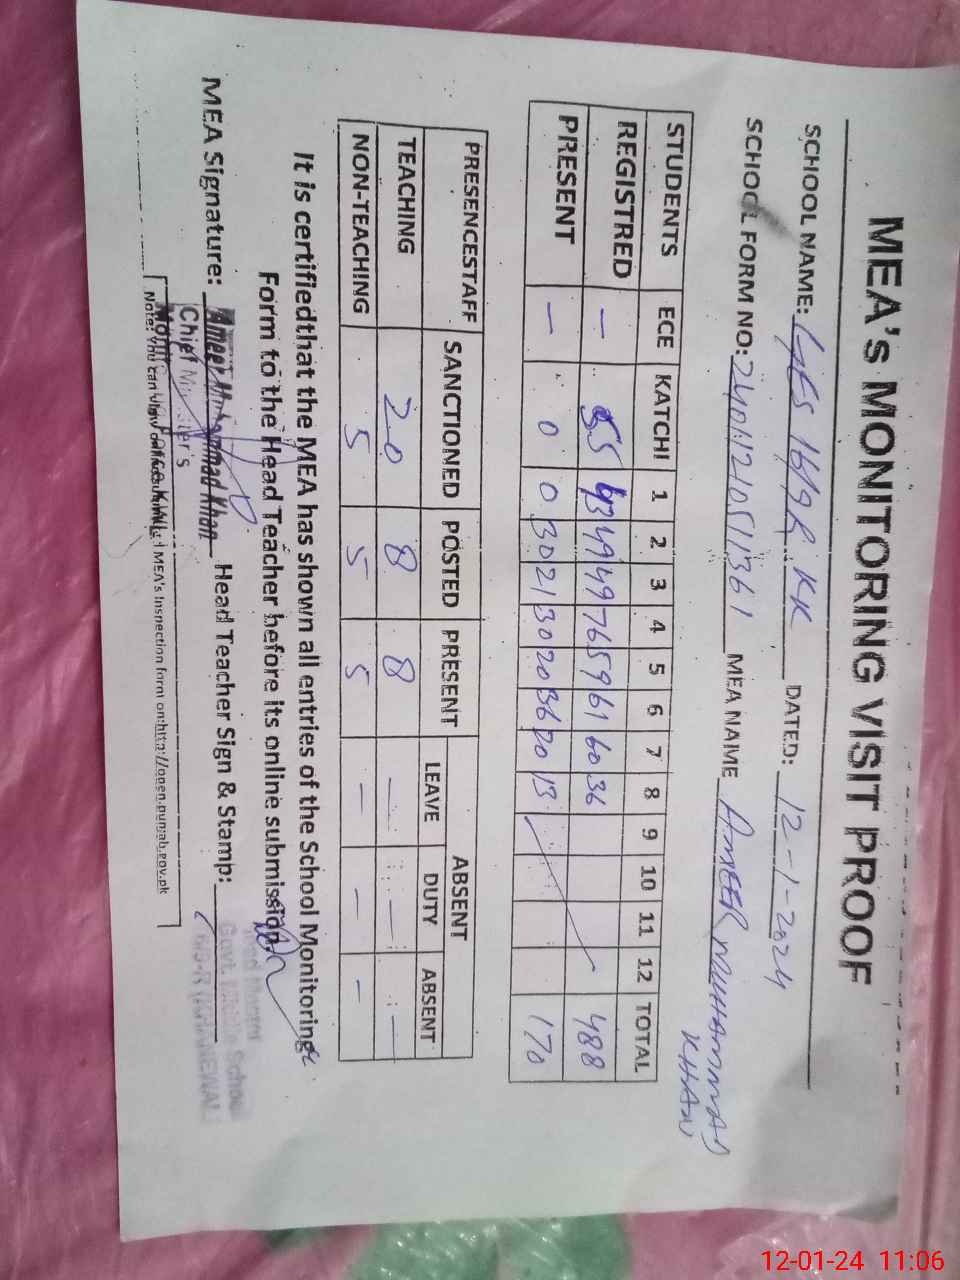 MEA'S MONITORING VISIT PROOF
SCHOOL NAME: GES 16/9R KK DATED: 12-1-2024
SCHOOL FORM NO: 24011210511361 MEA NAME AMEER MUHAMMAD KHAN
STUDENTS ECE KATCHI 1 2 3 4 5 6 7 8 9 10 11 12 TOTAL
REGISTRED — 55 43 49 49 76 59 61 60 36 488
PRESENT — 0 0 30 21 30 20 36 20 13 170
PRESENCESTAFF SANCTIONED POSTED PRESENT ABSENT
LEAVE DUTY ABSENT
TEACHING 20 8 8 — — —
NON-TEACHING 5 5 5 — — —
It is certifiedthat the MEA has shown all entries of the School Monitoring
Form to the Head Teacher before its online submission.
MEA Signature: Ameer Muhammad Khan Head Teacher Sign & Stamp:
Chief Minister's
Note: You can view MEA's Inspection form on:http://open.punjab.gov.pk
Govt. School
12-01-24 11:06